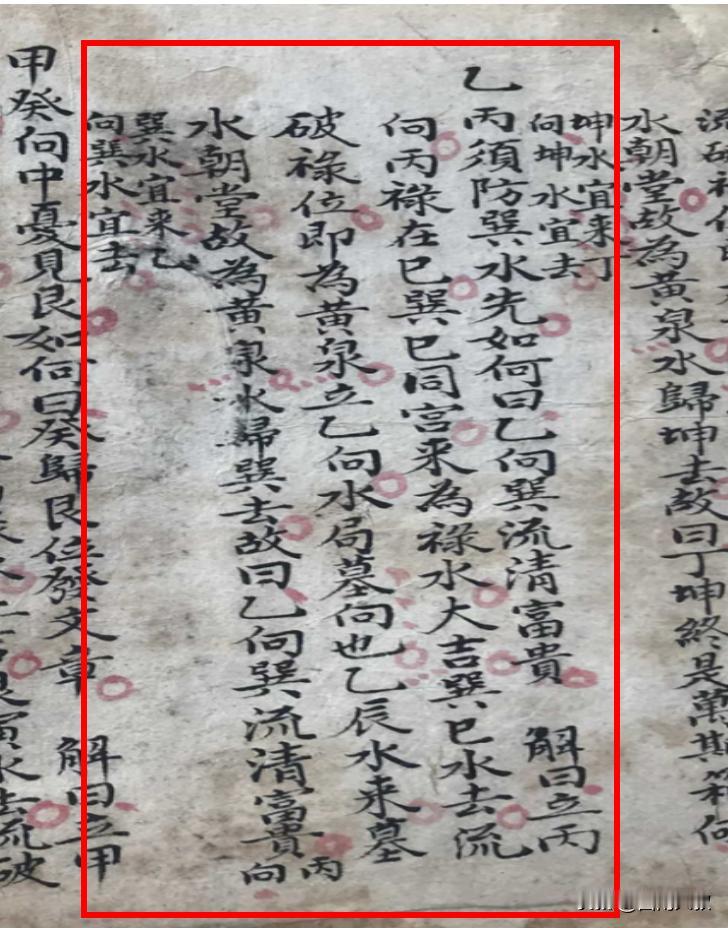 流破禄位
水朝堂故為黄泉水歸坤去故曰丁坤終是萬斯箱向
坤水宜来丁
向坤水宜去
乙丙須防巽水先如何曰乙向巽流清富貴 解曰立丙
向丙禄在巳巽巳同宫来為禄水大吉巽巳水去流
破禄位即為黄泉立乙向水局墓向也乙辰水来墓
水朝堂故為黄泉水歸巽去故曰乙向巽流清富貴丙
向
巽水宜来乙
向巽水宜去
甲癸向中憂見艮如何曰癸歸艮位發文章 解曰立甲
寅水去流破